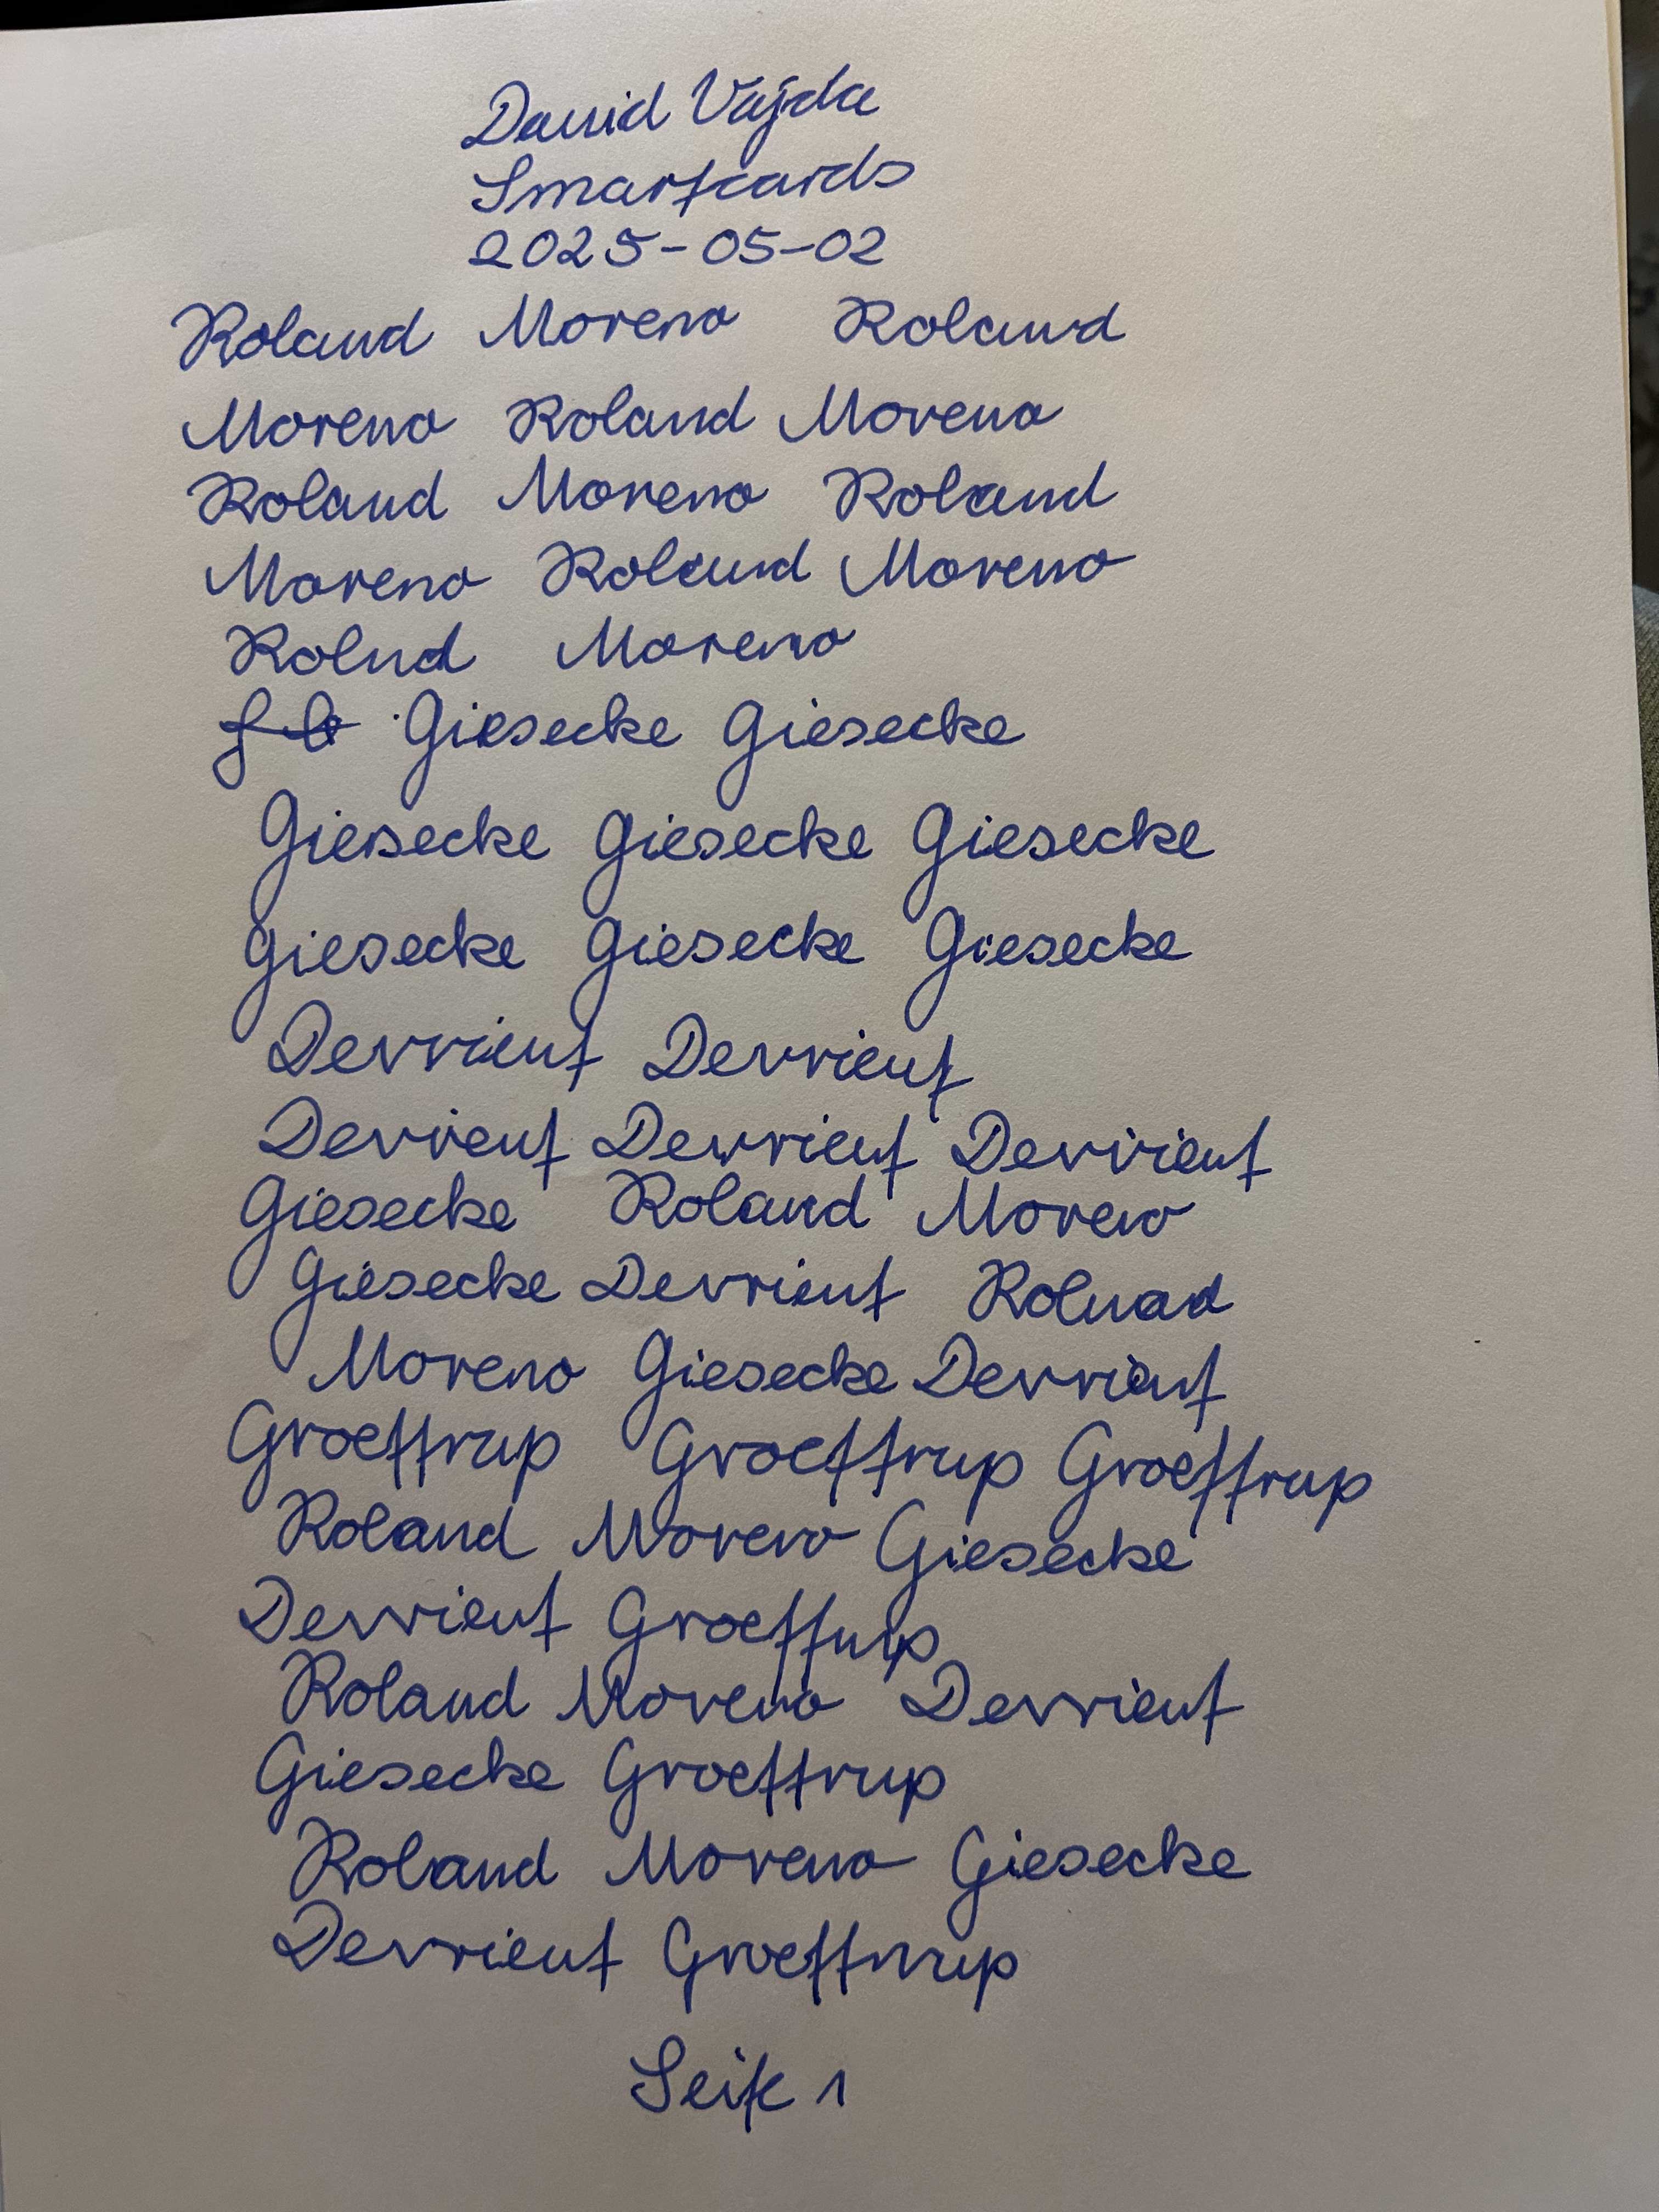 David Vajda
Smartcards
2025-05-02
Roland Moreno Roland
Moreno Roland Moreno
Roland Moreno Roland
Moreno Roland Moreno
Rolnd Moreno
Giesecke Giesecke
Giesecke Giesecke Giesecke
Giesecke Giesecke Giesecke
Devrient Devrient
Devrent Devrient Devrient
Giesecke Roland Moreno
Giesecke Devrient Rolnad
Moreno Giesecke Devrient
Groettrup Groettrup Groettrup
Roland Moreno Giesecke
Devrient Groettrup
Roland Moreno Devrient
Giesecke Groettrup
Roland Moreno Giesecke
Devrient Groettrup
Seite 1